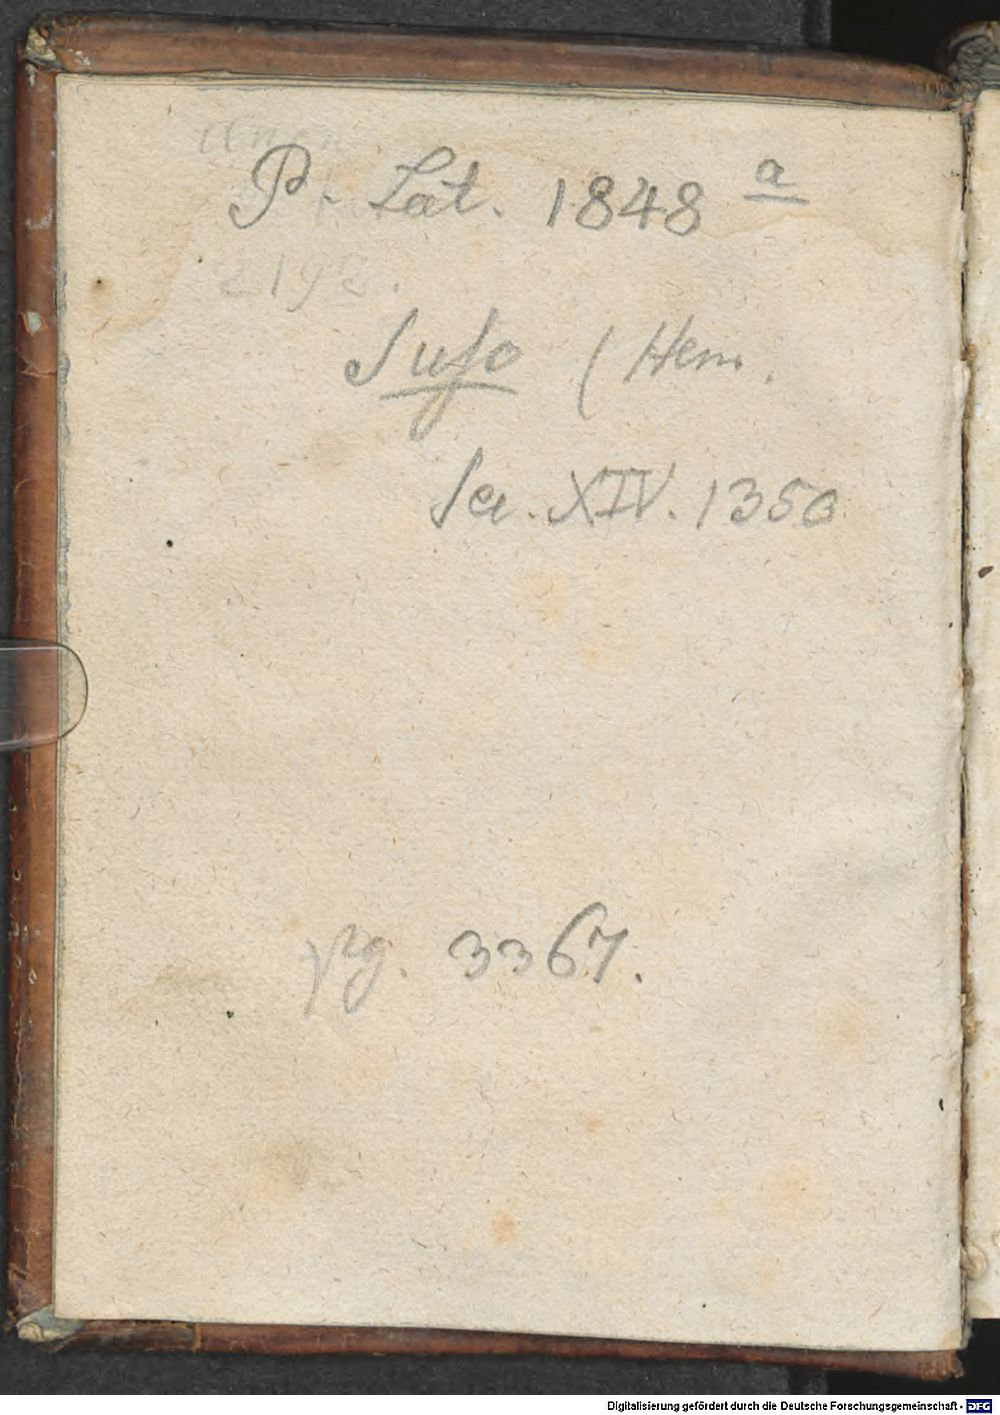 P. Lat. 1848 a
2192.
Suso (Henr.
Sec. XIV. 1350
pg. 3367.
Digitalisierung gefördert durch die Deutsche Forschungsgemeinschaft - DFG